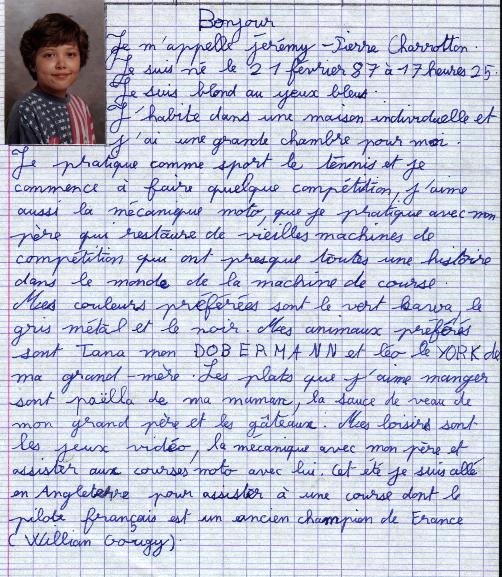 Bonjour
Je m'appelle jérémy-Pierre Charrotton.
Je suis né le 21 février 87 à 17 heures 25
Je suis blond au yeux bleus.
J'habite dans une maison individuelle et
j'ai une grande chambre pour moi.
Je pratique comme sport le tennis et je
commence à faire quelque compétition, j'aime
aussi la mécanique moto, que je pratique avec mon
père qui restaure de vieilles machines de
compétition qui ont presque toutes une histoire
dans le monde de la machine de course.
Mes couleurs préférées sont le vert kawa, le
gris métal et le noir. Mes animaux préférés
sont Tana mon DOBERMANN et léo le YORK de
ma grand-mère. Les plats que j'aime manger
sont paëlla de ma maman, la sauce de veau de
mon grand père et les gâteaux. Mes loisirs sont
les jeux vidéo, la mécanique avec mon père et
assister aux courses moto avec lui. Cet été je suis allé
en Angleterre pour assister à une course dont le
pilote français est un ancien champion de France
(William Gougy).